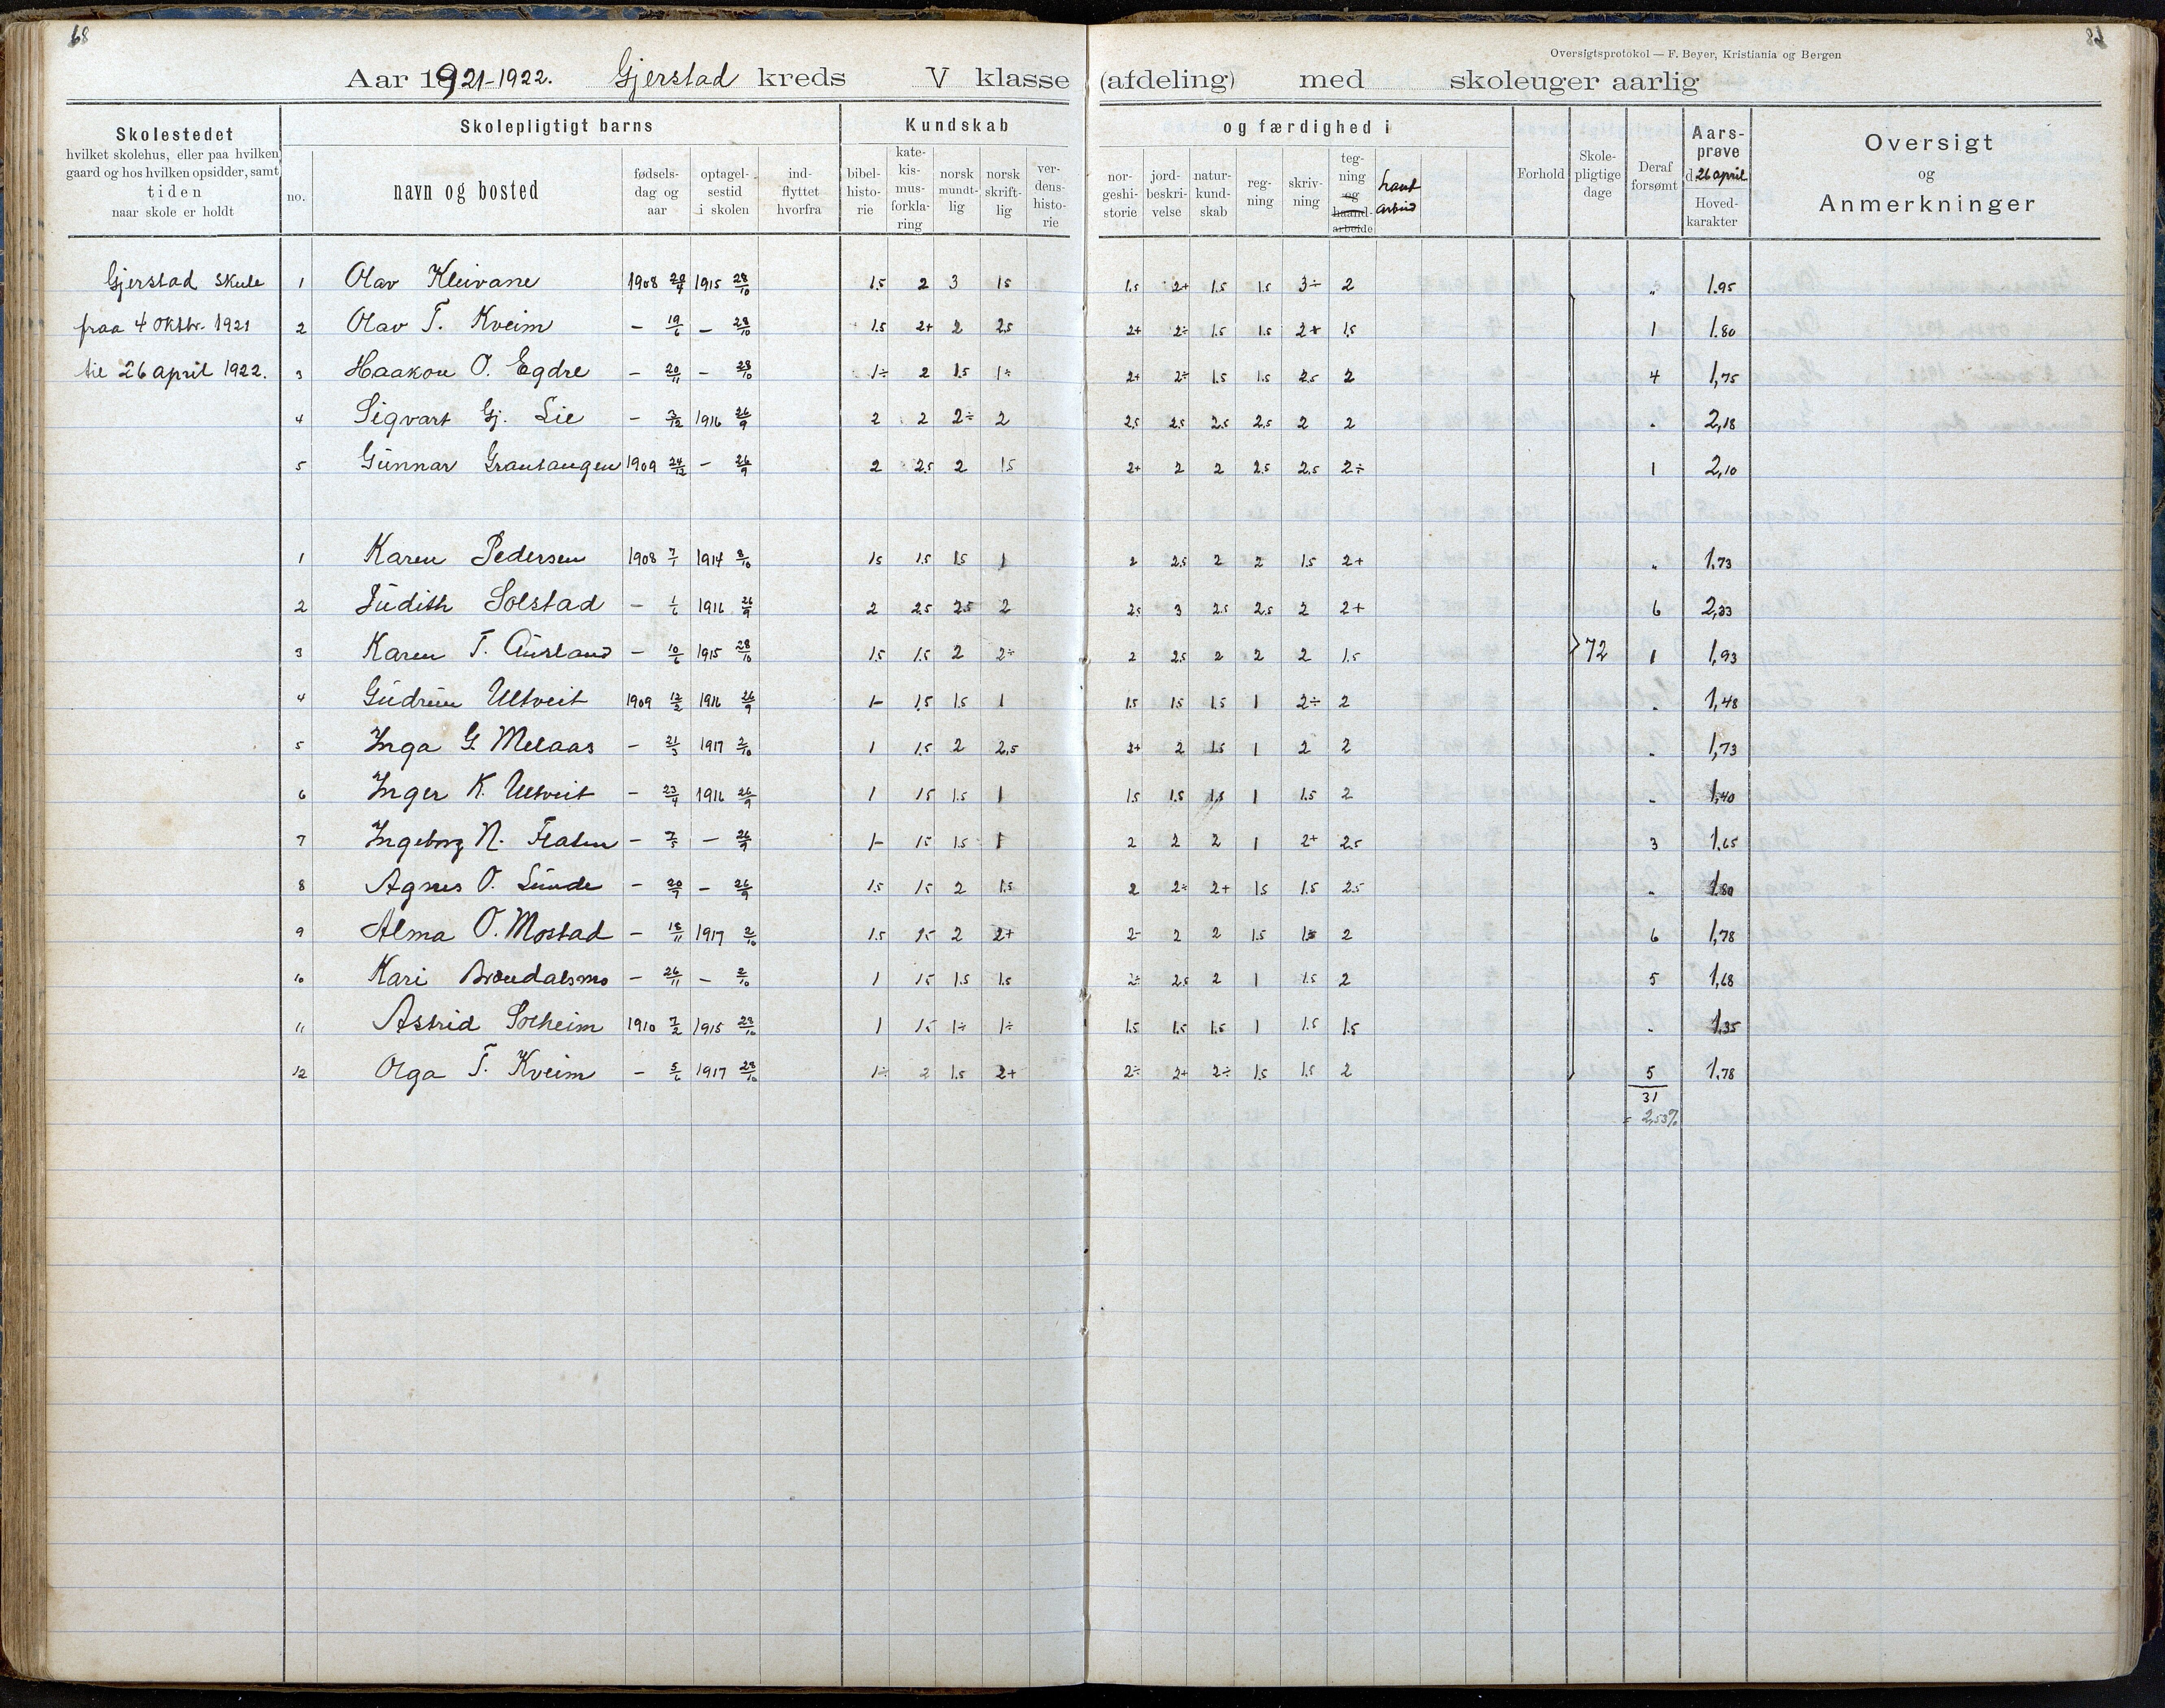 68
Oversigtsprotokol — F. Beyer, Kristiania og Bergen
Aar 1921-1922. Gjerstad kreds V klasse (afdeling) med skoleuger aarlig
Skolestedet hvilket skolehus, eller paa hvilken gaard og hos hvilken opsidder, samt tiden naar skole er holdt
Skolepligtigt barns
no. navn og bosted fødsels-dag og aar optagel-sestid i skolen ind-flyttet hvorfra
Kundskab og færdighed i
bibel-histo-rie kate-kis-mus-forkla-ring norsk mundt-lig norsk skrift-lig ver-dens-histo-rie nor-geshi-storie jord-beskri-velse natur-kund-skab reg-ning skriv-ning teg-ning og haand-arbeide
Forhold Skole-pligtige dage Deraf forsømt Aars-prøve d. 26 april Hoved-karakter Oversigt og Anmerkninger
Gjerstad skule 1 Olav Kleivane 1908 1915 28/10 1.5 2 3 1.5 1.5 2+ 1.5 1.5 3÷ 2 „ 1.95
fraa 4 oktbr. 1921 2 Olav T. Kveim – 19/6 – 28/10 1.5 2+ 2 2.5 2+ 2÷ 1.5 1.5 2+ 1.5 1 1.80
til 26 april 1922. 3 Haakon O. Egdre – 20/11 – 28/10 1÷ 2 1.5 1÷ 2+ 2÷ 1.5 1.5 2.5 2 4 1,75
4 Sigvart Gj. Lie – 3/12 1916 26/9 2 2 2÷ 2 2.5 2.5 2.5 2.5 2 2 „ 2,18
5 Gunnar Grautaugen 1909 24/12 – 26/9 2 2.5 2 1.5 2+ 2 2 2.5 2.5 2÷ 1 2,10
1 Karen Pedersen 1908 7/1 1914 8/10 1.5 1.5 1.5 1 2 2.5 2 2 1.5 2+ „ 1,73
2 Judith Solstad – 1/6 1916 26/9 2 2.5 2.5 2 2.5 3 2.5 2.5 2 2+ 6 2,23
3 Karen T. Ausland – 10/6 1915 28/10 1.5 1.5 2 2÷ 2 2.5 2 2 2 1.5 72 1 1,93
4 Gudrun Ulltveit 1909 12/2 1916 26/9 1- 1.5 1.5 1 1.5 1.5 1.5 1 2÷ 2 „ 1,48
5 Inga G. Melaas – 21/3 1917 2/10 1 1.5 2 2.5 2+ 2 1.5 1 2 2 „ 1,73
6 Inger K. Ulltveit – 23/4 1916 26/9 1 1.5 1.5 1 1.5 1.5 1.5 1 1.5 2 „ 1,40
7 Ingeborg N. Flaten – 7/5 – 26/9 1- 1.5 1.5 1 2 2 2 1 2+ 2.5 3 1.65
8 Agnes O. Lunde – 20/9 – 26/9 1.5 1.5 2 1.5 2 2÷ 2+ 1.5 1.5 2.5 „ 1.80
9 Alma O. Mostad – 18/11 1917 2/10 1.5 1.5 2 2+ 2- 2 2 1.5 1.5 2 6 1,78
10 Kari Brøndalsmo – 26/11 – 2/10 1 1.5 1.5 1.5 2÷ 2.5 2 1 1.5 2 5 1,68
11 Astrid Solheim 1910 7/2 1915 28/10 1 1.5 1÷ 1÷ 1.5 1.5 1.5 1 1.5 1.5 „ 1,35
12 Olga T. Kveim – 5/6 1917 28/10 1÷ 2 1.5 2+ 2÷ 2+ 2÷ 1.5 1.5 2 5 1,78
31
= 2,53%